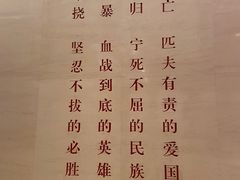 亡 匹夫有责的爱国
归 宁死不屈的民族
暴 血战到底的英雄
挠 坚忍不拔的必胜